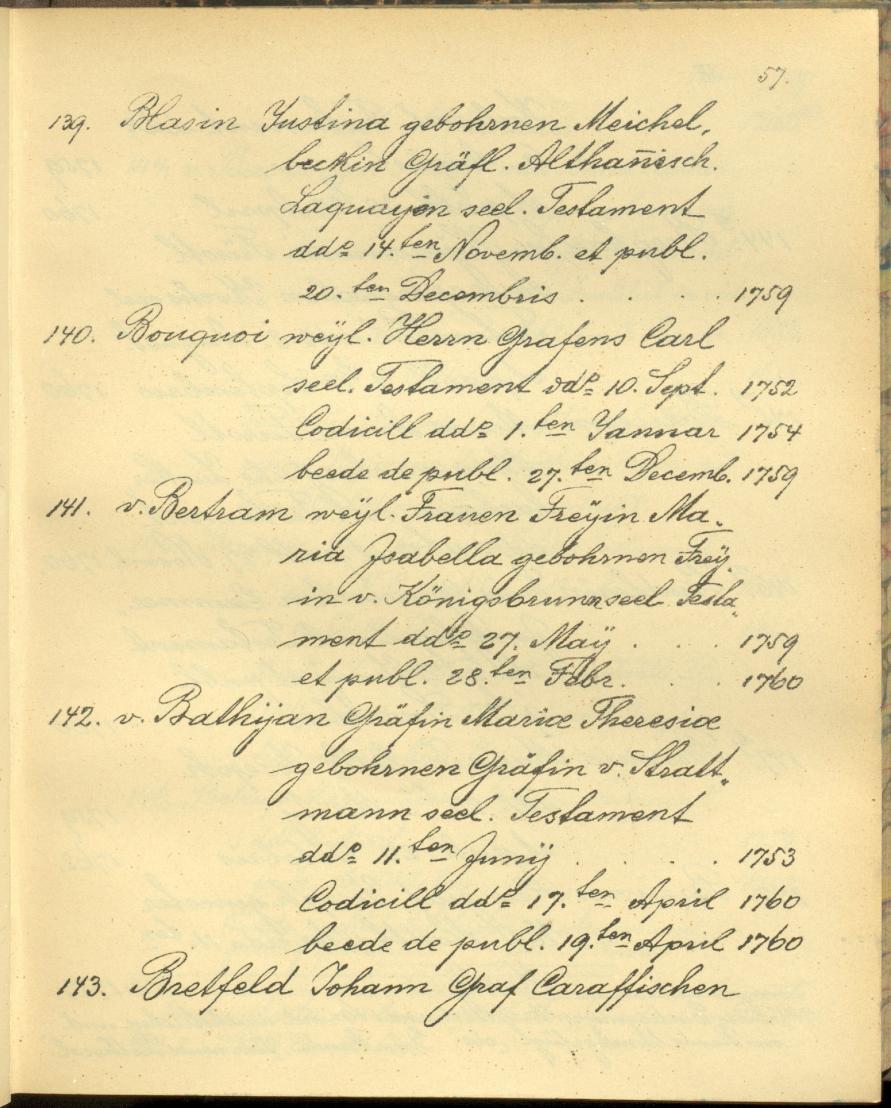 57.
139. Blasin Justina gebohrnen Meichel„
beckin Gräfl. Althan̄isch.
Laquayin seel. Testament
ddo 14.ten Novemb. et publ.
20.ten Decembris . . . . 1759
140. Bouquoi weÿl. Herrn Grafens Carl
seel. Testament ddo 10. Sept. 1752
Codicill ddo 1.ten Jannar 1754
beede de publ. 27.ten Decemb. 1759
141. v. Bertram weÿl. Frauen Freÿin Ma„
ria Isabella gebohrnen Freÿ„
in v. Königsbrunn seel. Testa„
ment ddo 27. Maÿ . . . 1759
et publ. 28.ten Febr. . . . 1760
142. v. Bathijan Gräfin Mariæ Theresiæ
gebohrnen Gräfin v. Stratt„
mann seel. Testament
ddo 11.ten Junÿ . . . . 1753
Codicill ddo 17.ten April 1760
beede de publ. 19.ten April 1760
143. Bretfeld Johann Graf Caraffischen